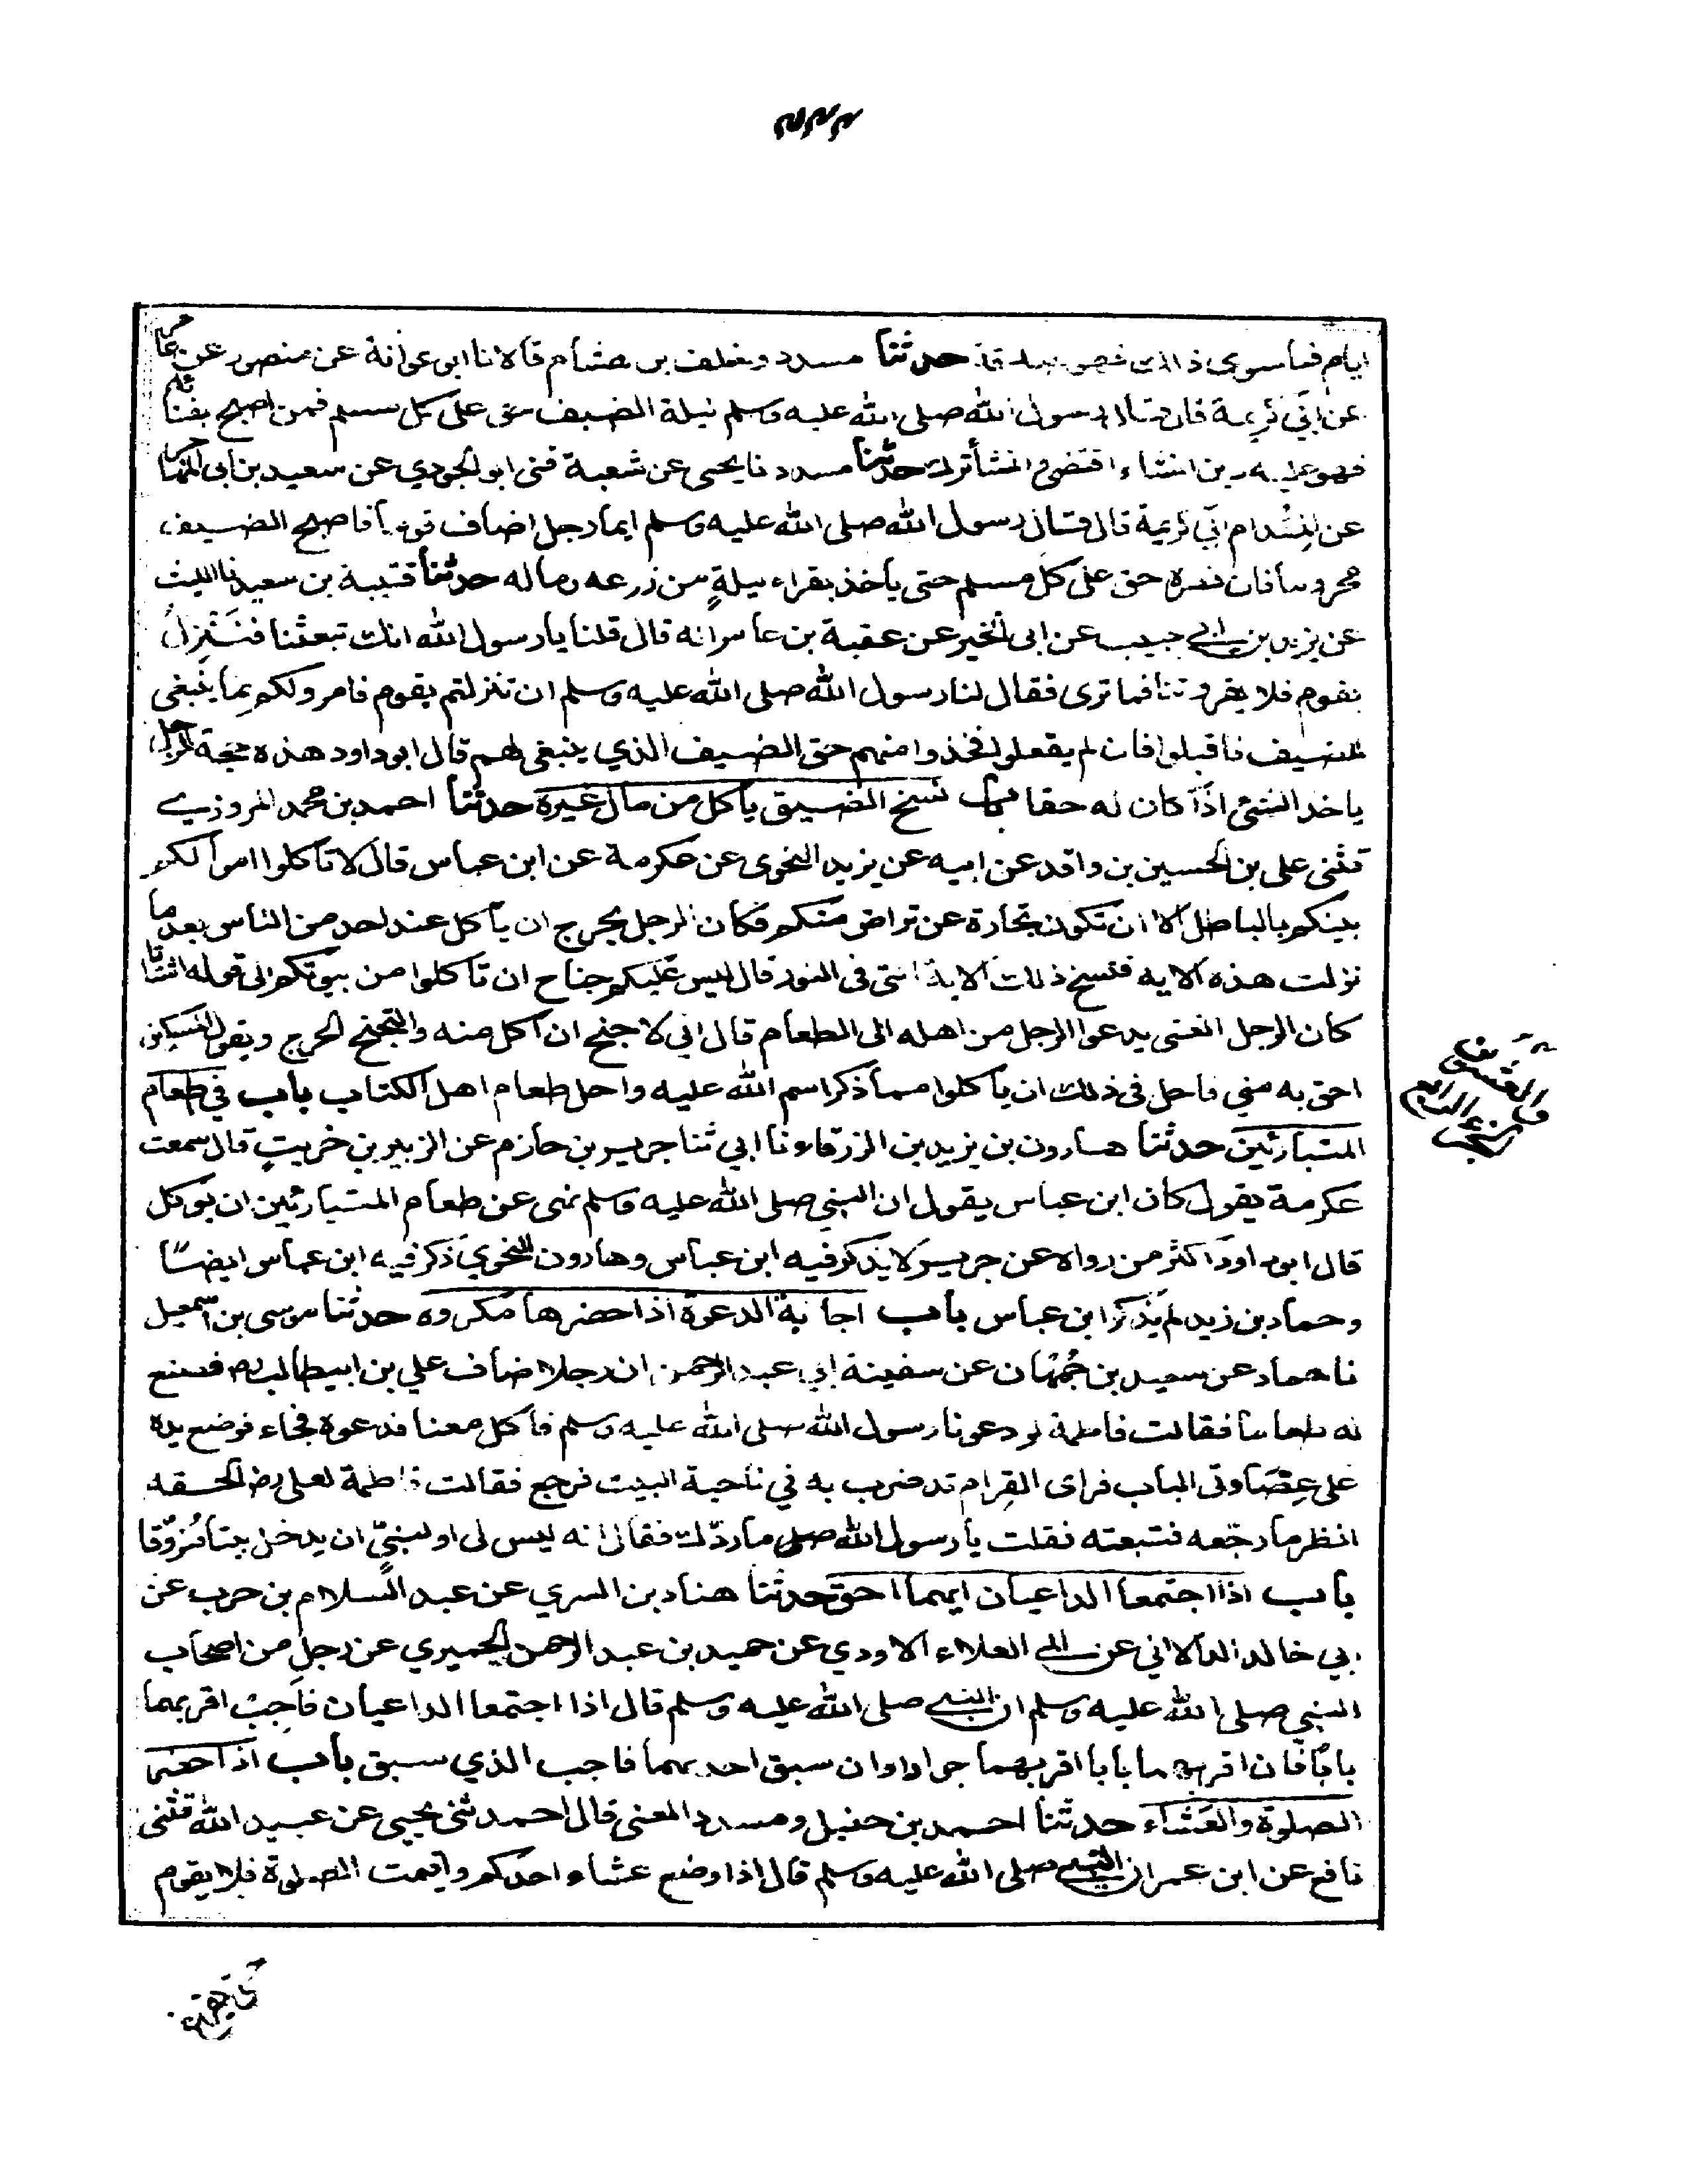 ايام فما سوى ذالك فهو صدقة حدثنا مسدد وخلف بن هشام قالا نا ابو عوانة عن منصور عن عامر
عن ابي كريمة قال قال رسول الله صلى الله عليه وسلم ليلة الضيف حق على كل مسلم فمن اصبح بفنائه
فهو عليه دين ان شاء اقتضى وان شاء ترك حدثنا مسدد نا يحيى عن شعبة ثنى ابو الجودي عن سعيد بن ابي المهاجر
عن المقدام ابي كريمة قال قال رسول الله صلى الله عليه وسلم ايما رجل اضاف قوما فاصبح الضيف
محروما فان نصره حق على كل مسلم حتى ياخذ بقراء ليلةٍ من زرعه وماله حدثنا قتيبة بن سعيد نا الليث
عن يزيد بن ابي حبيب عن ابي الخير عن عقبة بن عامر انه قال قلنا يا رسول الله انك تبعثنا فننزل
بقوم فلا يقروننا فما ترى فقال لنا رسول الله صلى الله عليه وسلم ان نزلتم بقوم فامروا لكم بما ينبغي
للضيف فاقبلوا فان لم يفعلوا فخذوا منهم حق الضيف الذي ينبغي لهم قال ابو داود هذه حجة للرجل
ياخذ الشئ اذا كان له حقا باب نسخ الضيق ياكل من مال غيره حدثنا احمد بن محمد المروزي
قثنى علي بن الحسين بن واقد عن ابيه عن يزيد النحوى عن عكرمة عن ابن عباس قال لا تاكلوا اموالكم
بينكم بالباطل الا ان تكون تجارة عن تراض منكم فكان الرجل يحرج ان ياكل عند احد من الناس بعد ما
نزلت هذه الايه فنسخ ذلك الاية التي في النور قال ليس عليكم جناح ان تاكلوا من بيوتكم الى قوله اشتاتا
كان الرجل الغنى يدعوا الرجل من اهله الى الطعام قال اني لاجنح ان آكل منه والتجنح الحرج ويقول المسكين
احق به مني فاحل في ذلك ان ياكلوا مما ذكر اسم الله عليه واحل طعام اهل الكتاب باب في طعام
المتبارئين حدثنا هارون بن يزيد بن الزرقاء نا ابي ثنا جرير بن حازم عن الزبير بن خريتٍ قال سمعت
عكرمة يقول كان ابن عباس يقول ان النبي صلى الله عليه وسلم نهى عن طعام المتبارئين ان يوكل
قال ابو داود اكثر من رواه عن جرير لا يذكر فيه ابن عباس وهارون النحوي ذكر فيه ابن عباس ايضًا
وحماد بن زيد لم يذكر ابن عباس باب اجابة الدعوة اذا حضرها مكروه حدثنا موسى بن اسمعيل
نا حماد عن سعيد بن جُمْهان عن سفينة ابي عبد الرحمن ان رجلا ضاف علي بن ابيطالب رض فصنع
له طعاما فقالت فاطمة لو دعونا رسول الله صلى الله عليه وسلم فاكل معنا فدعوه فجاء فوضع يده
على عِضَادتي الباب فراى القِرام قد ضرب به في ناحية البيت فرجع فقالت فاطمة لعلي رض الحقه
انظر ما رجعه فتبعته فقلت يا رسول الله صلى ما ردّك فقال انه ليس لى او لنبيٍّ ان يدخل بيتا مُزوّقا
باب اذا اجتمعا الداعيان ايهما احق حدثنا هناد بن السري عن عبد السلام بن حرب عن
ابي خالد الدالاني عن ابي العلاء الاودي عن حميد بن عبد الرحمن الحميري عن رجل من اصحاب
النبي صلى الله عليه وسلم ان النبي صلى الله عليه وسلم قال اذا اجتمعا الداعيان فاَجِبْ اقربهما
بابًا فان اقربهما بابا اقربهما جوادا وان سبق احدهما فاجب الذي سبق باب اذا حضر
الصلوة والعَشَاء حدثنا احمد بن حنبل ومسدد المعنى قال احمد ثنى يحيى عن عبيد الله قثنى
نافع عن ابن عمر ان النبي صلى الله عليه وسلم قال اذا وضع عشاء احدكم واقيمت الصلوة فلا يقوم